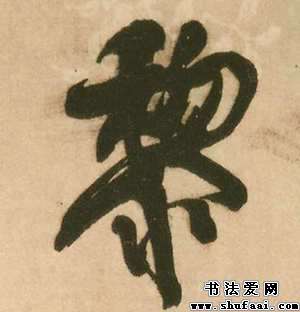 黎
书法爱网
www.shufaai.com